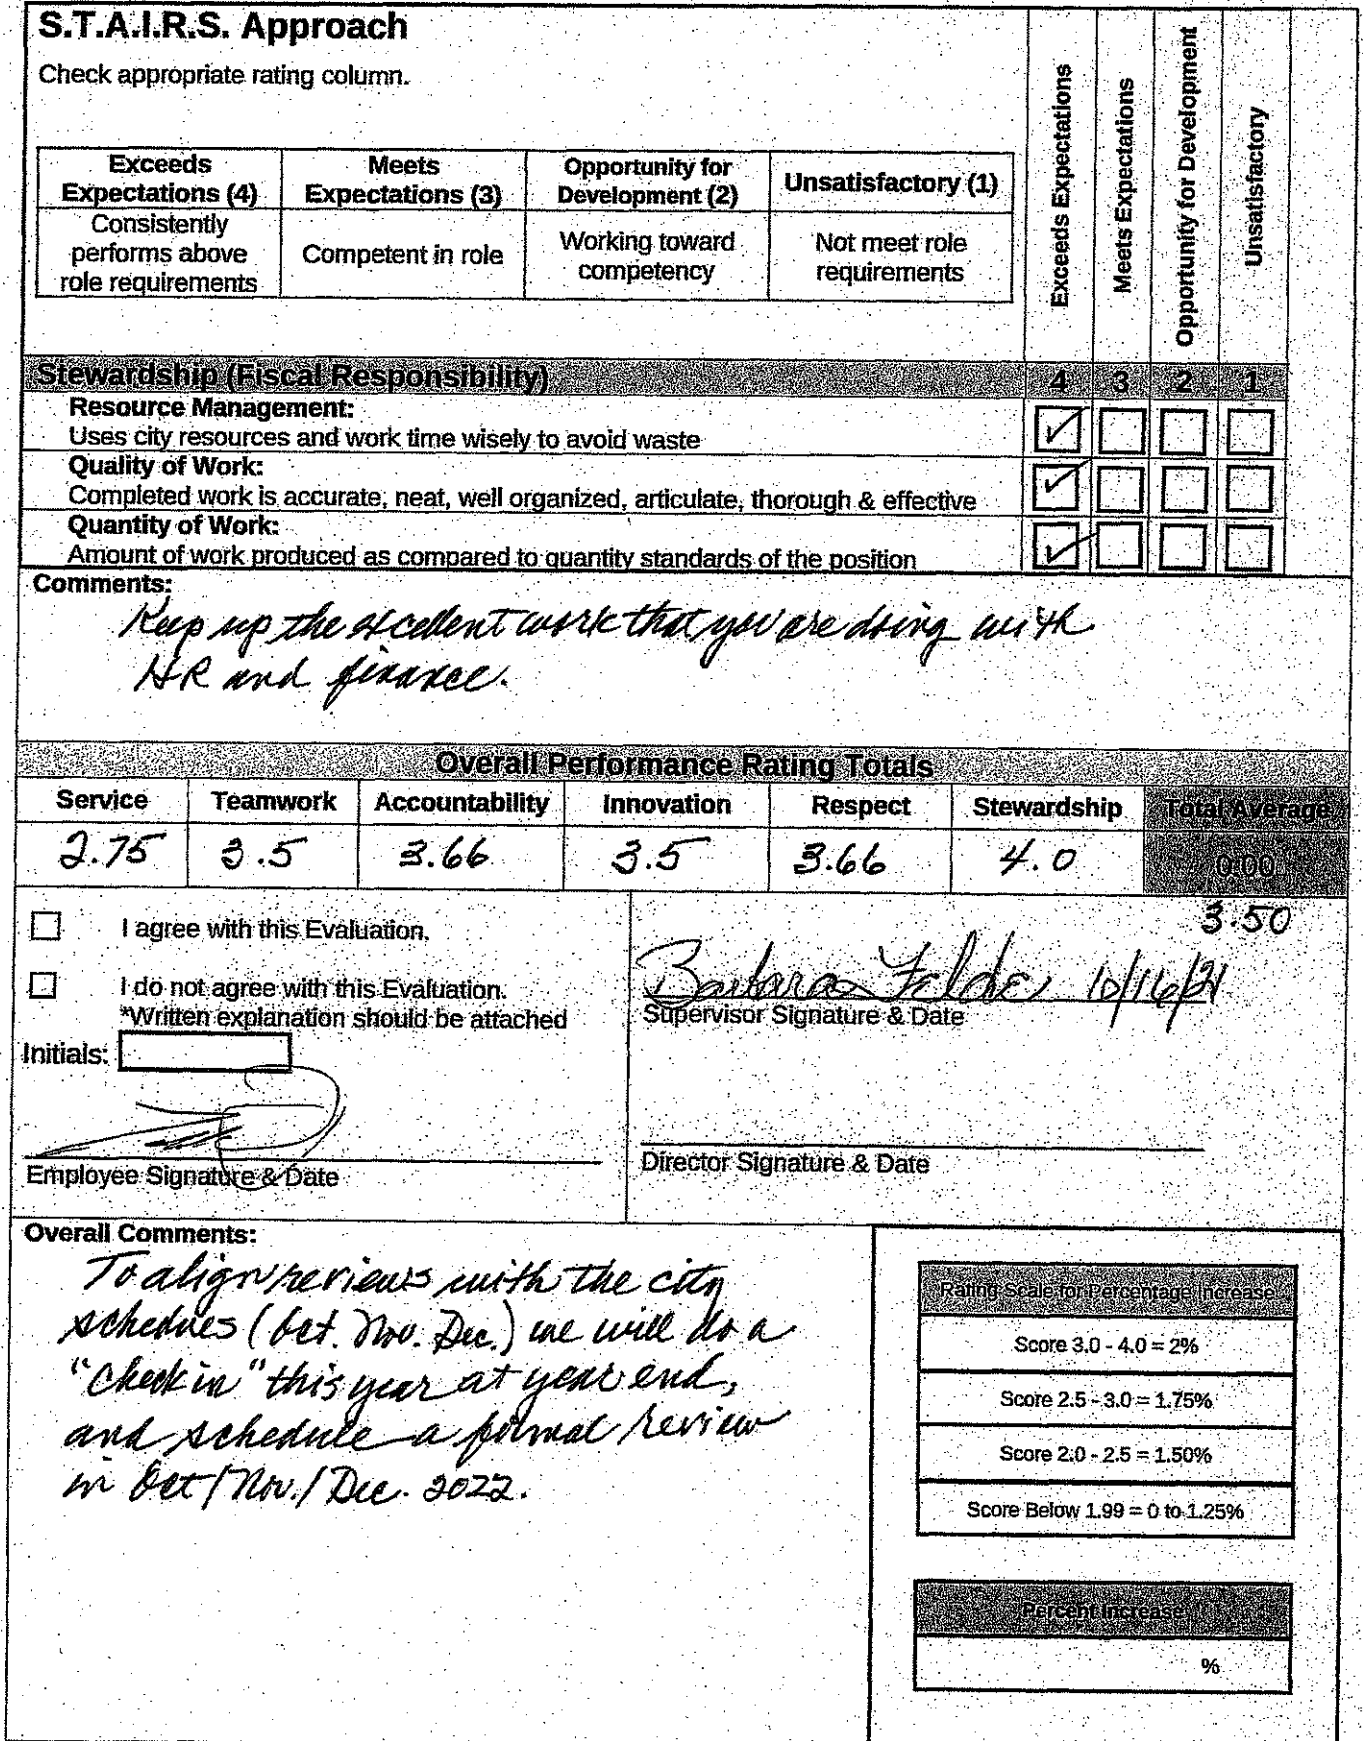 S.T.A.I.R.S. Approach
Check appropriate rating column.
Exceeds Expectations (4)
Meets Expectations (3)
Opportunity for Development (2)
Unsatisfactory (1)
Consistently performs above role requirements
Competent in role
Working toward competency
Not meet role requirements
Exceeds Expectations
Meets Expectations
Opportunity for Development
Unsatisfactory
Stewardship (Fiscal Responsibility) 4 3 2 1
Resource Management:
Uses city resources and work time wisely to avoid waste
Quality of Work:
Completed work is accurate, neat, well organized, articulate, thorough & effective
Quantity of Work:
Amount of work produced as compared to quantity standards of the position
Comments:
Keep up the excellent work that you are doing with
HR and finance.
Overall Performance Rating Totals
Service Teamwork Accountability Innovation Respect Stewardship Total Average
2.75 3.5 3.66 3.5 3.66 4.0 0.00
3.50
I agree with this Evaluation.
I do not agree with this Evaluation.
*Written explanation should be attached
Initials:
Employee Signature & Date
Barbara 10/16/21
Supervisor Signature & Date
Director Signature & Date
Overall Comments:
To align reviews with the city
schedules (Oct. Nov. Dec.) we will do a
"check in" this year at year end,
and schedule a formal review
in Oct/Nov./Dec. 2022.
Rating Scale for Percentage Increase
Score 3.0 - 4.0 = 2%
Score 2.5 - 3.0 = 1.75%
Score 2.0 - 2.5 = 1.50%
Score Below 1.99 = 0 to 1.25%
Percent Increase
%